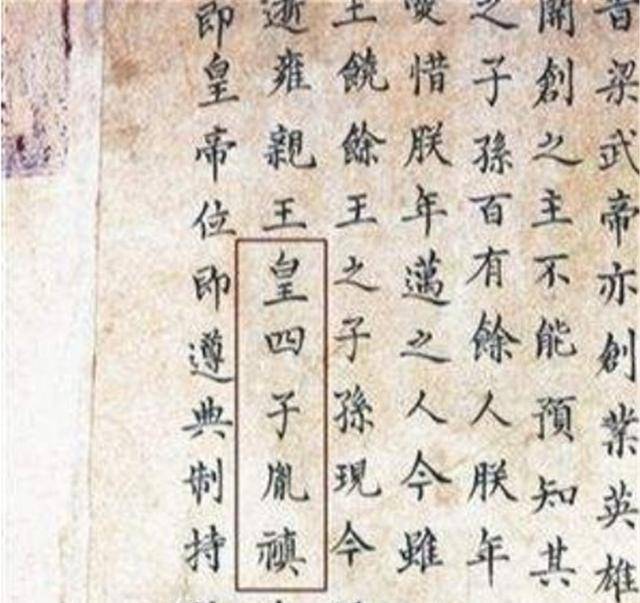 昔梁武帝亦創業英雄
開創之主不能預知其
之子孫百有餘人朕年
愛惜朕年邁之人今雖
王饒餘王之子孫現今
逝雍親王皇四子胤禛
即皇帝位即遵典制持